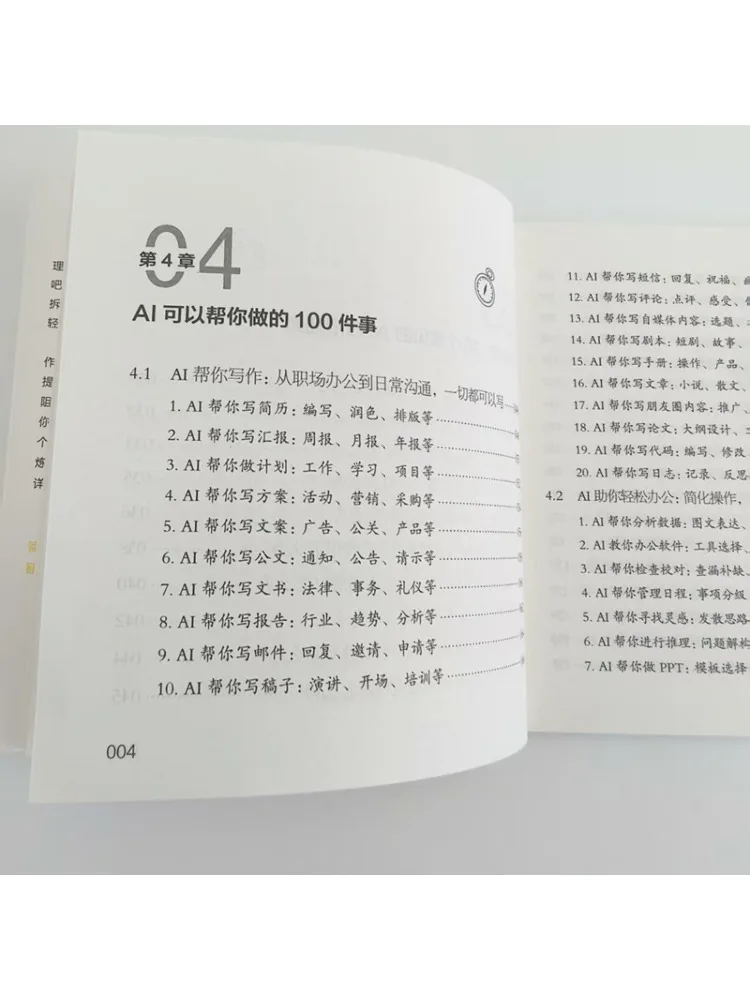 04
第4章
AI 可以帮你做的 100 件事
4.1 AI 帮你写作：从职场办公到日常沟通，一切都可以写
1. AI 帮你写简历：编写、润色、排版等
2. AI 帮你写汇报：周报、月报、年报等
3. AI 帮你做计划：工作、学习、项目等
4. AI 帮你写方案：活动、营销、采购等
5. AI 帮你写文案：广告、公关、产品等
6. AI 帮你写公文：通知、公告、请示等
7. AI 帮你写文书：法律、事务、礼仪等
8. AI 帮你写报告：行业、趋势、分析等
9. AI 帮你写邮件：回复、邀请、申请等
10. AI 帮你写稿子：演讲、开场、培训等
004
理吧拆轻 作提阻你个炼详
11. AI 帮你写短信：回复、祝福、
12. AI 帮你写评论：点评、感受、
13. AI 帮你写自媒体内容：选题、
14. AI 帮你写剧本：短剧、故事、
15. AI 帮你写手册：操作、产品、
16. AI 帮你写文章：小说、散文、
17. AI 帮你写朋友圈内容：推广、
18. AI 帮你写论文：大纲设计、
19. AI 帮你写代码：编写、修改、
20. AI 帮你写日志：记录、反思
4.2 AI 助你轻松办公：简化操作，
1. AI 帮你分析数据：图文表达、
2. AI 教你办公软件：工具选择、
3. AI 帮你检查校对：查漏补缺、
4. AI 帮你管理日程：事项分级
5. AI 帮你寻找灵感：发散思路
6. AI 帮你进行推理：问题解构
7. AI 帮你做 PPT：模板选择